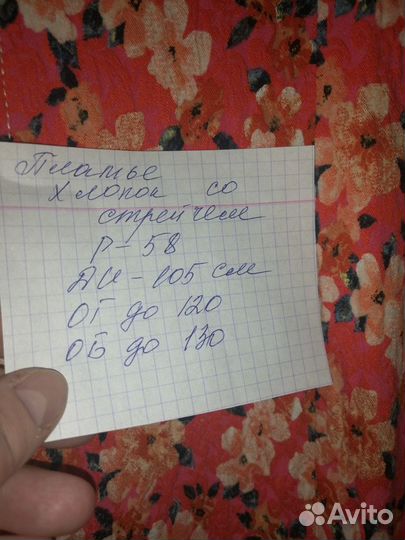 Платье
хлопок со
стрейчем
Р-58
ДИ-105 см
ОГ до 120
ОБ до 130
Avito